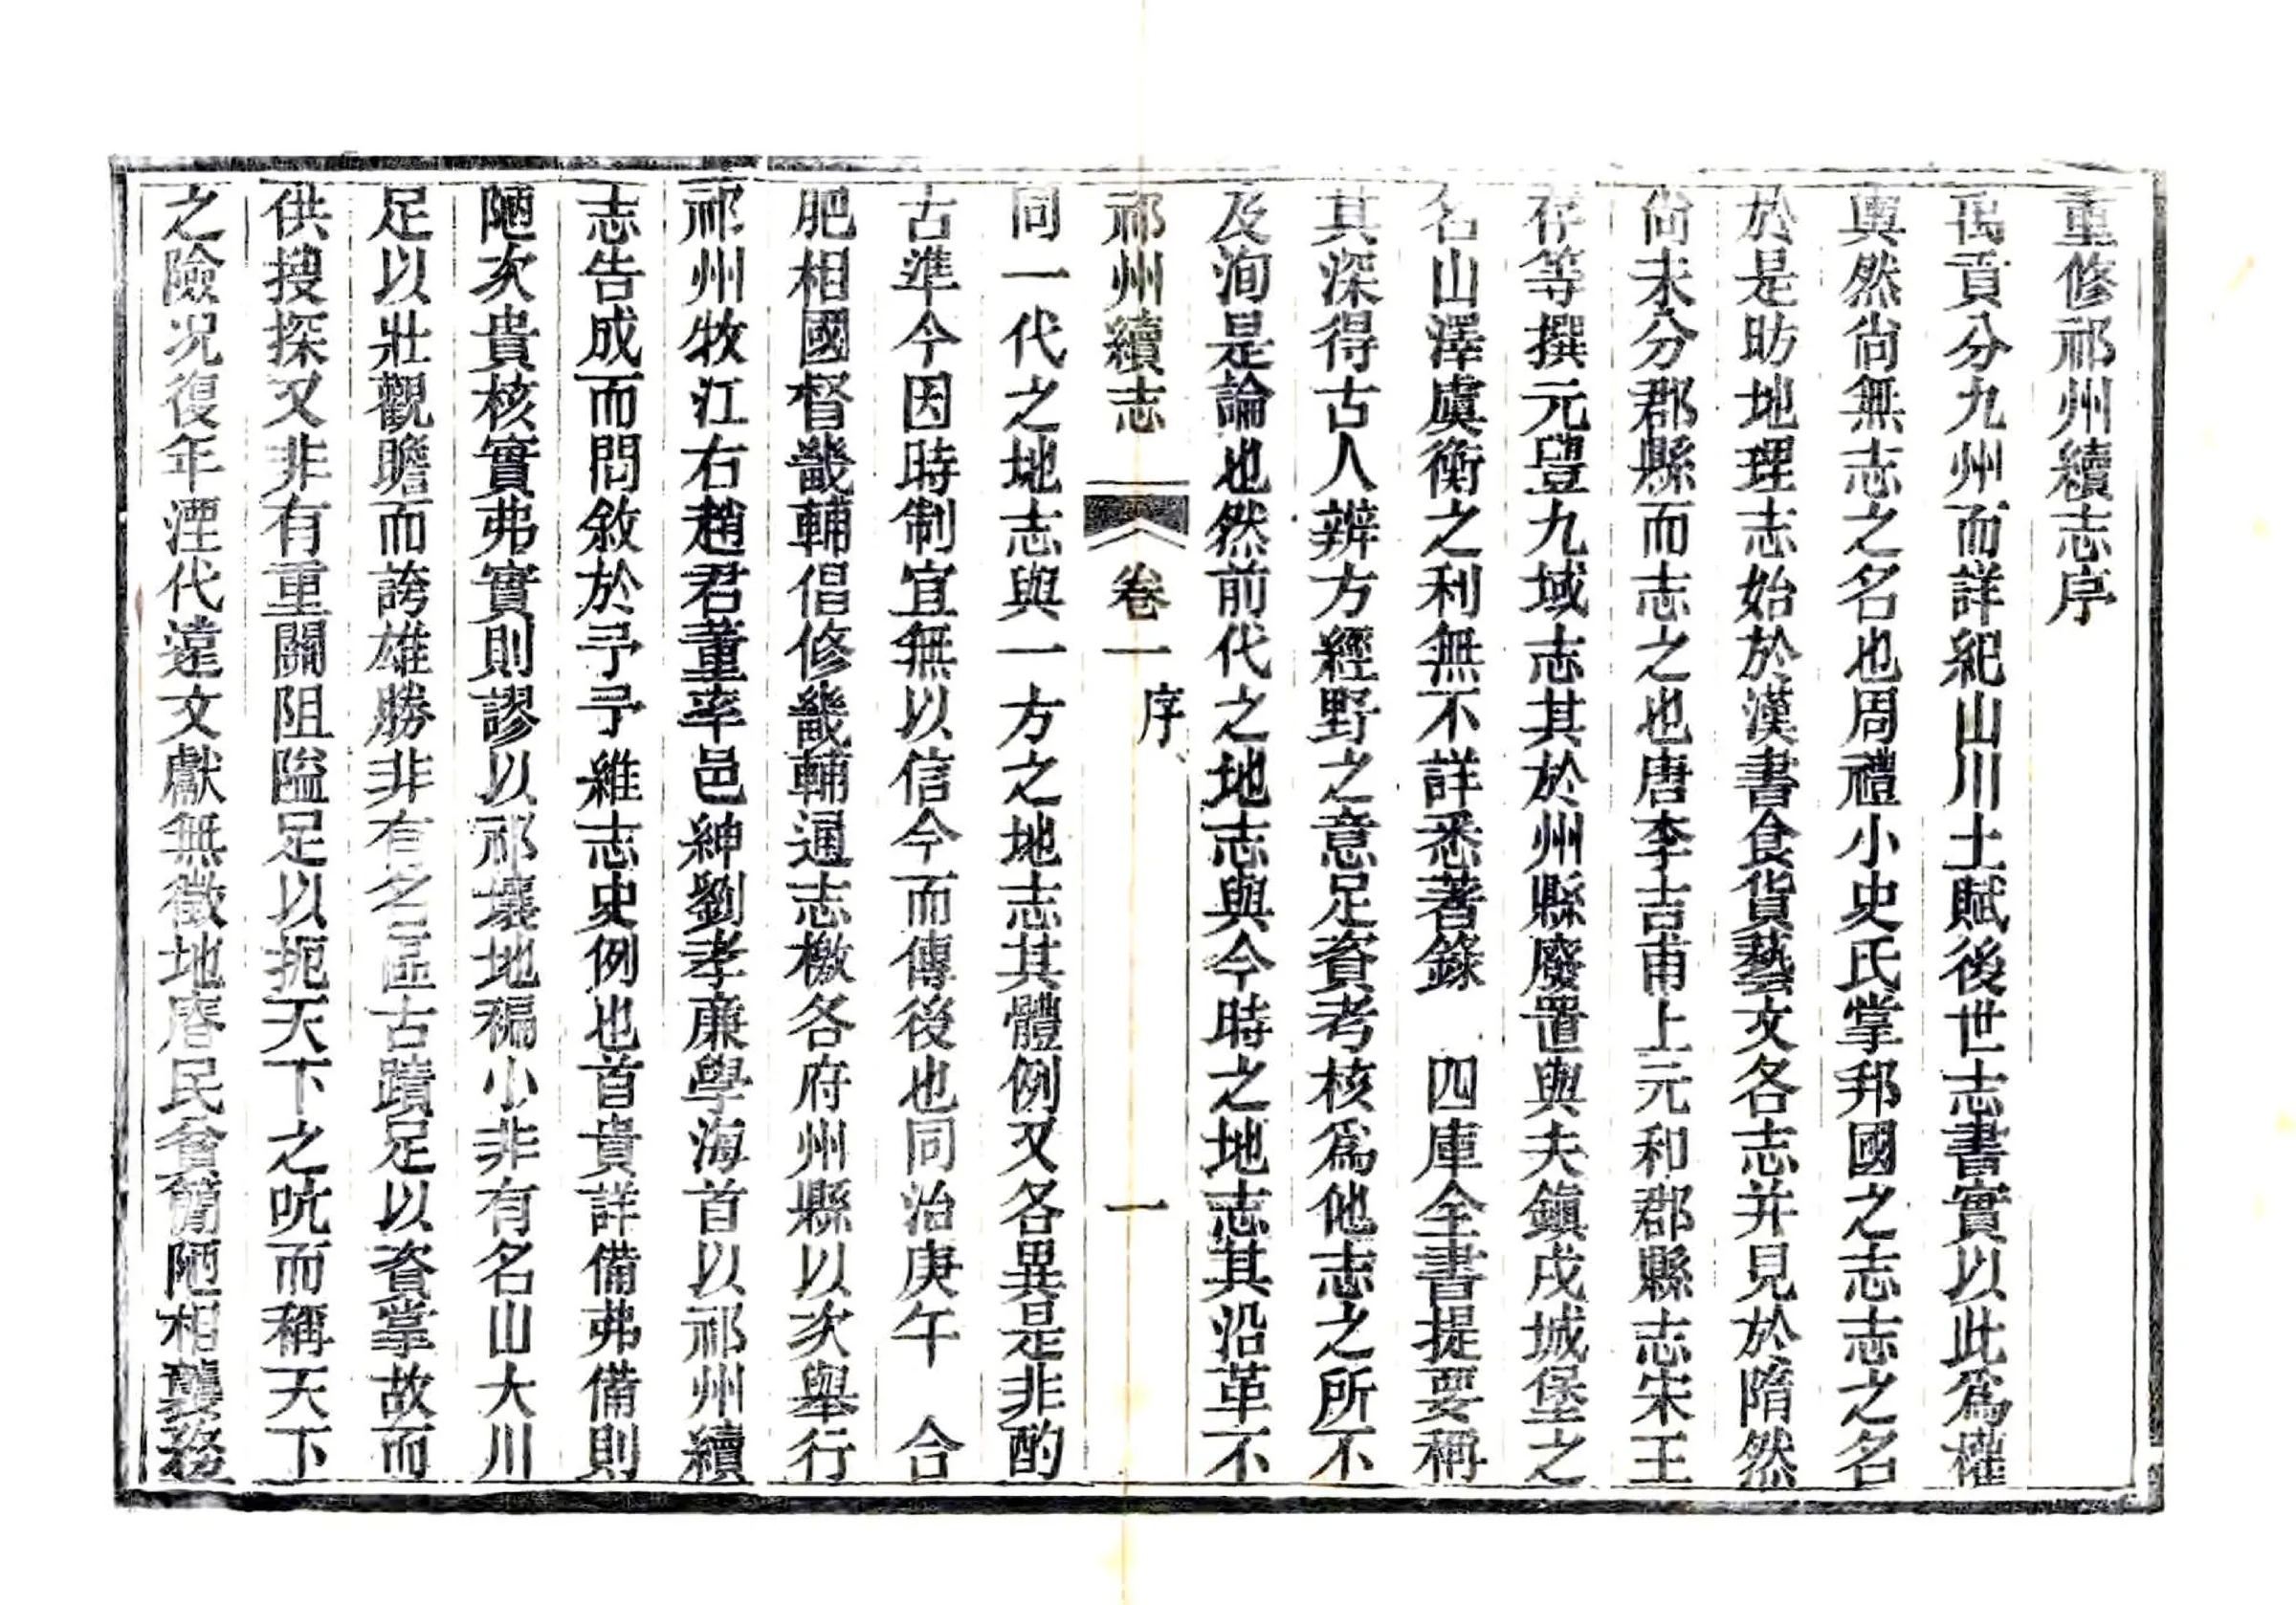 重修祁州續志序
禹貢分九州而詳紀山川土賦後世志書實以此爲權
輿然尙無志之名也周禮小史氏掌邦國之志志之名
於是昉地理志始於漢書食貨藝文各志并見於隋然
尙未分郡縣而志之也唐李吉甫上元和郡縣志宋王
存等撰元豐九域志其於州縣廢置與夫鎭戍城堡之
名山澤虞衡之利無不詳悉著錄　四庫全書提要稱
其深得古人辨方經野之意足資考核爲他志之所不
及洵是論也然前代之地志與今時之地志其沿革不
祁州續志
卷一
序
一
同一代之地志與一方之地志其體例又各異是非酌
古準今因時制宜無以信今而傳後也同治庚午　合
肥相國督畿輔倡修畿輔通志檄各府州縣以次舉行
祁州牧江右趙君董率邑紳劉孝廉學海首以祁州續
志告成而問敘於予予維志史例也首貴詳備弗備則
陋次貴核實弗實則謬以祁壤地褊小非有名山大川
足以壯觀瞻而誇雄勝非有名區古蹟足以資掌故而
供搜探又非有重關阻隘足以扼天下之吭而稱天下
之險况復年湮代遠文獻無徵地瘠民貧簡陋相襲務